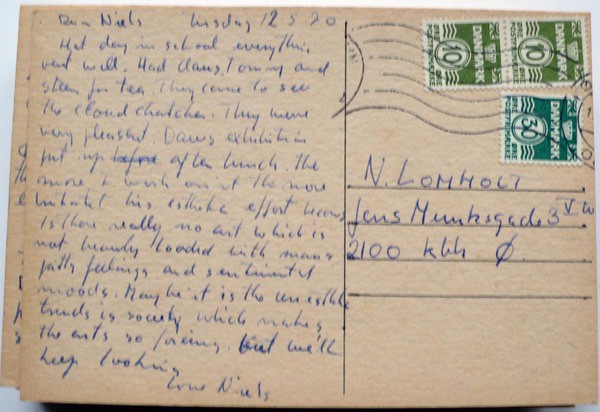 Dear Niels Tirsdag 12 5 70
Hot day in school everything
went well. Had Claus, Tommy and
Steen for tea. They came to see
the cloud chatcher. They were
very pleasent. Dawns exhibition
put up before after lunch. the
more I work on it the more
his esthetic effort becomes
Is there really no art which is
not heavily loaded with many
feelings and sentimental
moods. Maybe it is the unesthetic
trends is society which makes
the arts so forcing. but we'll
keep looking
love Niels
10 DANMARK 10 DANMARK
30 DANMARK
N. LOMHOLT
Jens Munksgade 3 V tv
2100 kbh Ø.